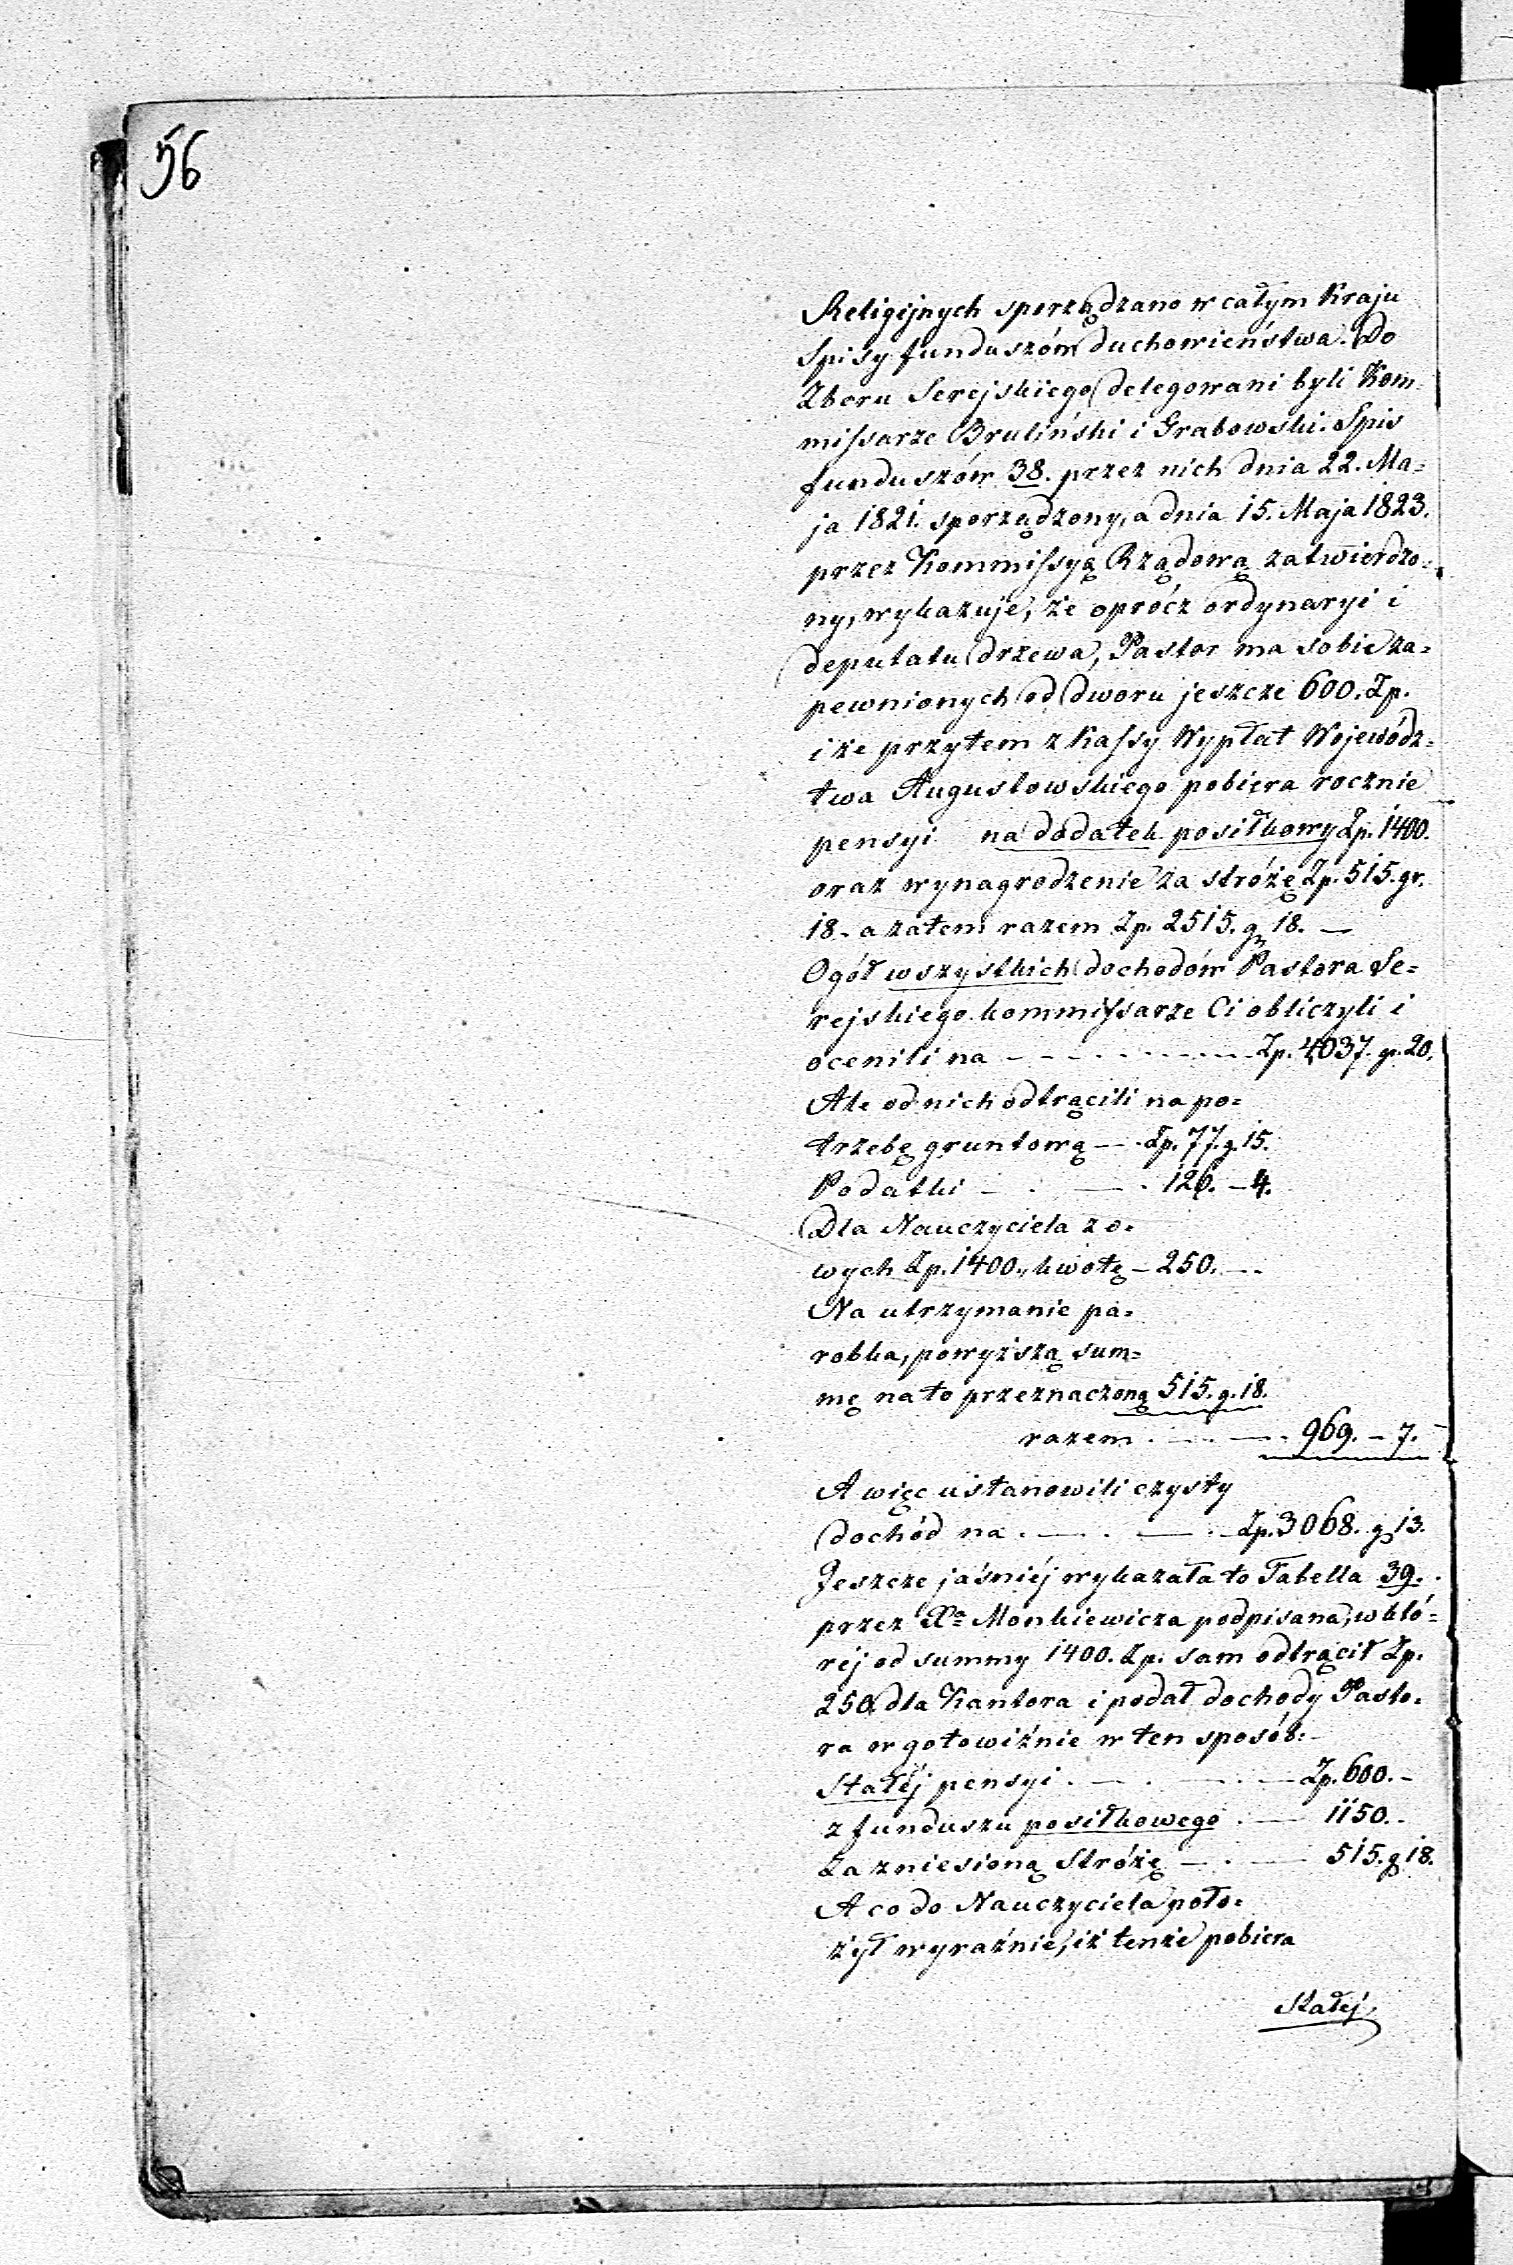 56
Religijnych sporządzano w całym Kraju
Spisy funduszów duchowieństwa. Do
Zboru Serejskiego delegowani byli Kom-
miſsarze Bruliński i Grabowski. Spis
funduszów 38. przez nich dnia 22. Ma=
ja 1821. sporządzony, a dnia 15. Maja 1823.
przez Kommiſsyą Rządową zatwierdzo=
ny, wykazuje, że oprócz ordynaryi i
deputatu drzewa, Pastor ma sobie za=
pewnionych od dworu jeszcze 600. Zp.
i że przytem z Kaſsy Wypłat Wojewódz=
twa Augustowskiego pobiera rocznie
pensyi na dodatek posiłkowy Zp. 1400.
oraz wynagrodzenie za stróżę Zp. 515. gr.
18 - a zatem razem Zp. 2515. g. 18. —
Ogół wszystkich dochodów Pastora Se=
rejskiego kommiſsarze Ci obliczyli i
ocenili na - - - - - - - - - Zp. 4037. gr. 20.
Ale od nich odtrącili na po=
trzebę gruntową — . Zp. 77. g. 15.
Podatki — . — . 126. — 4.
Dla Nauczyciela z o=
wych Zp. 1400., kwotę — 250. — -
Na utrzymanie pa=
robka, powyższą sum=
mę na to przeznaczoną 515. g. 18.
razem . — . — . 969. — 7.
A więc ustanowili czysty
dochód na . — . — . — Zp. 3068. g 13.
Jeszcze jaśniéj wykazała to Tabella 39.
przez Xa Monkiewicza podpisana, w któ=
réj od summy 1400. Zp. sam odtrącił Zp.
250 dla Kantora i podał dochody Pasto=
ra w gotowiźnie w ten sposób: -
Stałéj pensyi . — . — . — Zp. 600. -
z funduszu posiłkowego . — 1150. -
Za zniesioną Stróżę — . — 515. g 18.
A co do Nauczyciela poło=
żył wyraźnie, iż tenże pobiera
Stałéj